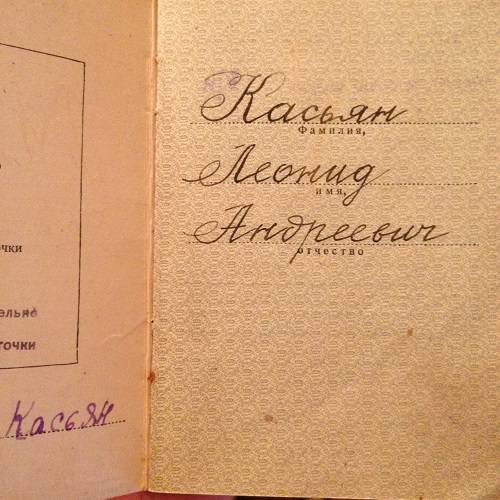 чки
ельно
точки
Касьян
Касьян
Фамилия,
Леонид
имя,
Андреевич
отчество